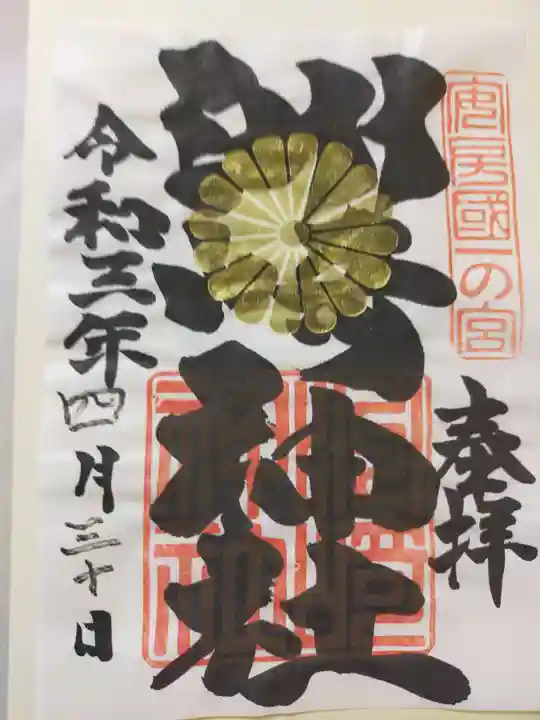 安房國一の宮
奉拝
神社
令和三年四月三十日